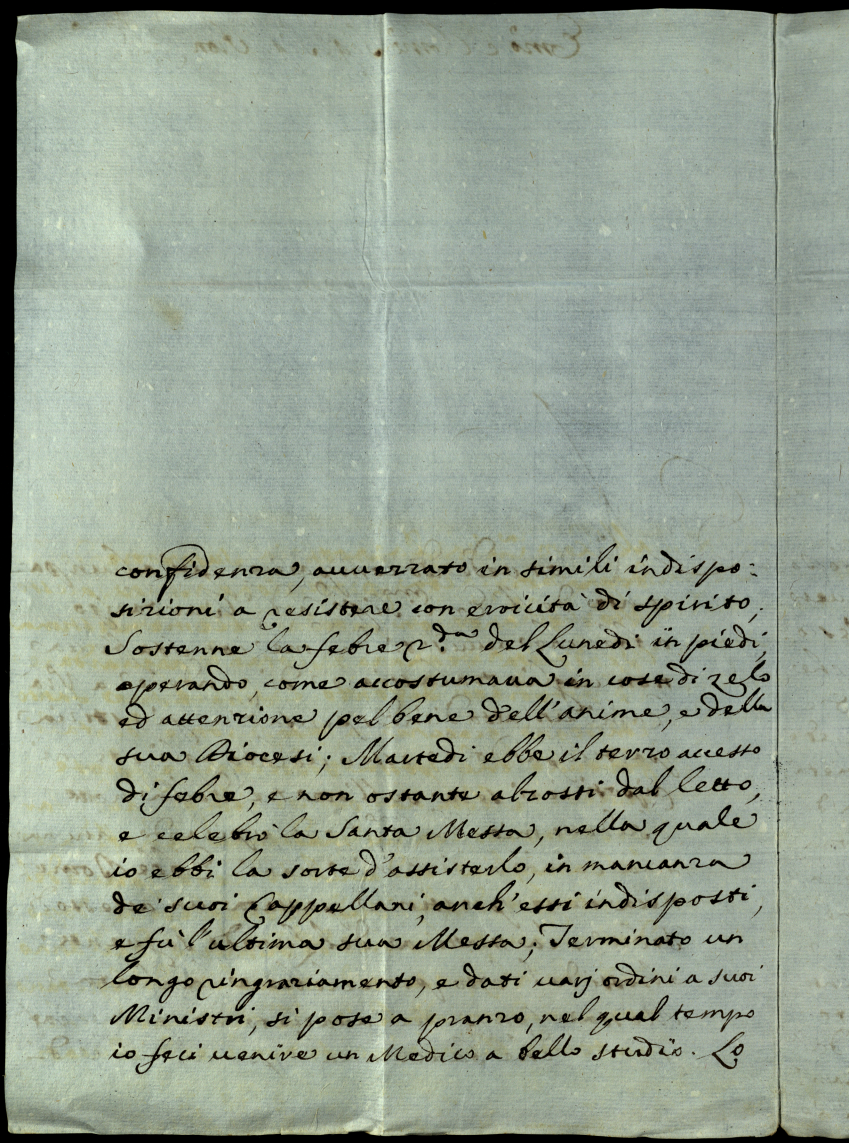 confidenza, avverzato in simili indispo-
sizioni a resistere con eroicità di spirito;
Sostenne la febre 2.da del Lunedì in piedi,
operando, come accostumava in cose di zelo
ed attenzione pel bene dell'anime, e della
sua Diocesi; Martedì ebbe il terzo accesso
di febre, e non ostante alzossi dal letto,
e celebrò la Santa Messa, nella quale
io ebbi la sorte d'assisterlo, in mancanza
de' suoi Cappellani, anch'essi indisposti,
e fù l'ultima sua Messa; Terminato un
longo ringraziamento, e dati varj ordini a suoi
Ministri, si pose a pranzo, nel qual tempo
io feci venire un Medico a bello studio. Lo